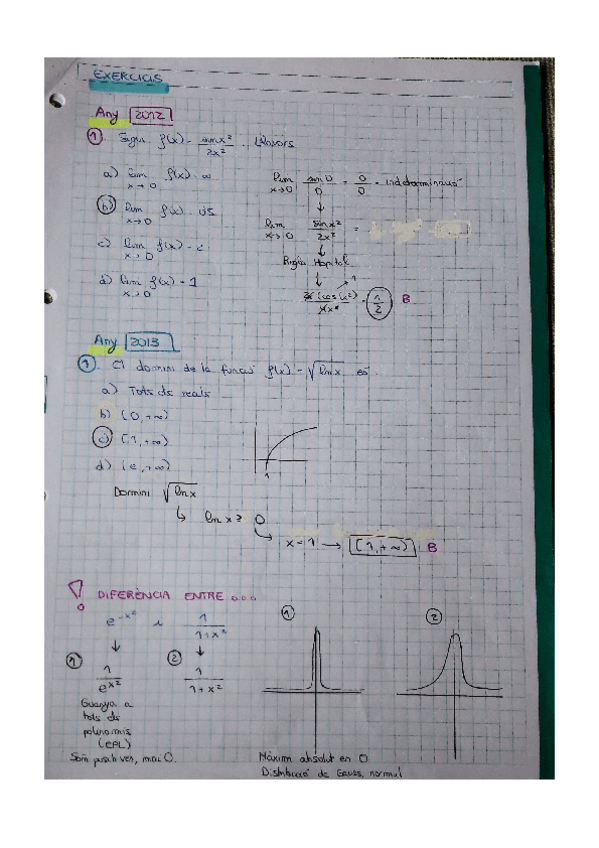 EXERCICIS
Any 2012
1. Sigui f(x) = sinx²/2x². Llavors
a) lim x→0 f(x) = ∞
b) lim x→0 f(x) = 0'5
c) lim x→0 f(x) = e
d) lim x→0 f(x) = 1
lim x→0 sin0/0 = 0/0 = indeterminació
↓
lim x→0 sinx²/2x² =
↓
Regla Hopital
↓
= 1/2 B
Any 2013
1. El domini de la funció f(x) = √lnx és
a) Tots els reals
b) (0,+∞)
c) [1,+∞)
d) (e,+∞)
1
Domini √lnx
↳ lnx ≥ 0
↳ x = 1 → [1,+∞) B
! DIFERÈNCIA ENTRE ...
e^-x² i 1/1+x²
↓ ↓
1 1/e^x² 2 1/1+x²
Guanya a
tots els
polinomis
(EPL)
Són positives, mai 0.
1 2
Màxim absolut en 0
Distribució de Gauss, normal